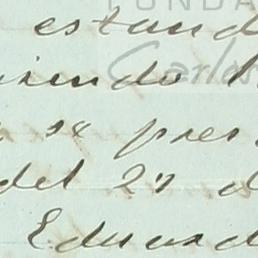 FUNDA
estand
iendo
Carlos
se pres
del 27 d
Eduard